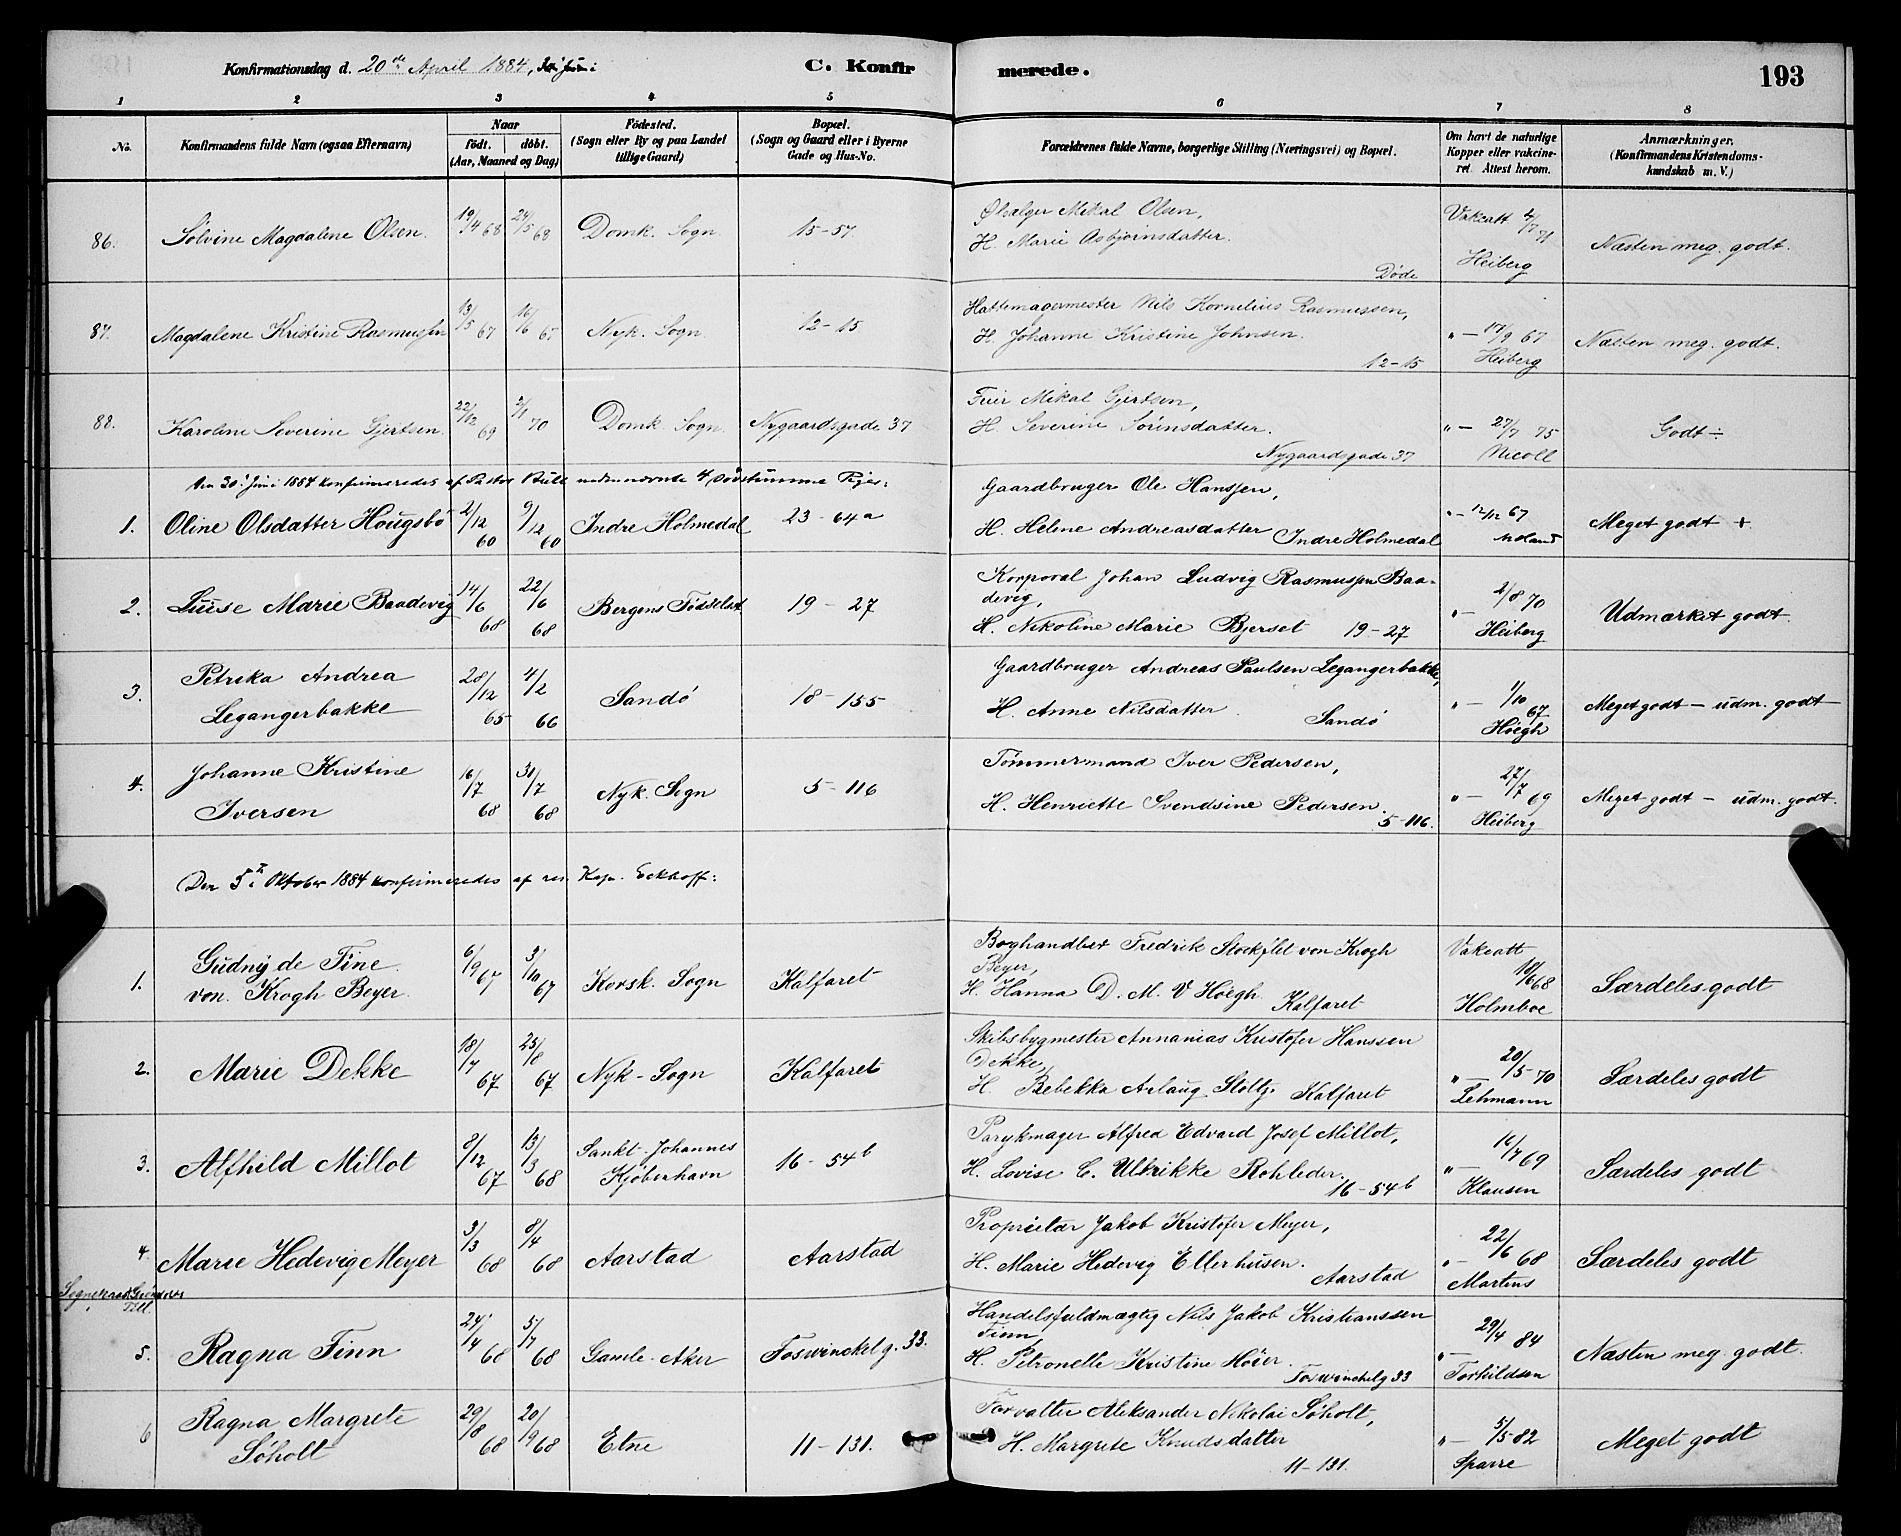 Konfirmationsdag d. 20de April 1884,
C. Konfirmerede.
193
1 2 3 4 5 6 7 8
No.
Konfirmandens fulde Navn (ogsaa Efternavn)
Naar
Födt. döbt.
(Aar, Maaned og Dag)
Födested.
(Sogn eller By og paa Landet
tillige Gaard)
Bopæl.
(Sogn og Gaard eller i Byerne
Gade og Hus-No.
Forældrenes fulde Navne, borgerlige Stilling (Næringsvei) og Bopæl.
Om havt de naturlige
Kopper eller vakcine-
ret. Attest herom.
Anmærkninger.
(Konfirmandens Kristendoms-
kundskab m. V.)
86. Solvine Magdalene Olsen. 19/4 68 24/5 68 Domk. Sogn. 15-57. Mikal Olsen,
H. Marie Asbjörnsdatter.
Döde
Vakcatt 4/7 71
Heiberg
Næsten meg. godt.
87. Magdalene Kristine Rasmussen 13/5 67 16/6 67 Nyk. Sogn. 12-15 Hattemagermester Nils Kornelius Rasmussen,
H. Johanne Kristine Johnsen.
12-15
" — 17/9 67
Heiberg
Næsten meg. godt.
88. Karoline Severine Gjertsen. 22/12 69 2/1 70 Domk. Sogn. Nygaardsgade 37 Feier Mikal Gjertsen,
H. Severine Sörinsdatter.
Nygaardsgade 37
" — 27/7 75
Nicoll
Godt ÷
Den 30. Juni 1884 konfirmeredes af Pastor Bull nedennævnte 4 dövstumme Piger:
1. Oline Olsdatter Hougsbö 2/12 60 9/12 60 Indre Holmedal 23-64a Gaardbruger Ole Hanssen,
H. Helene Andreasdatter Indre Holmedal
" — 12/12 67
Meget godt +
2. Luise Marie Baadevig 14/6 68 22/6 68 Bergens Födselst 19-27 Korporal Johan Ludvig Rasmussen Baa-
devig,
H. Nikoline Marie Bjerset 19-27
" — 2/8 70
Heiberg
Udmærket godt
3. Petrika Andrea
Legangerbakke
28/12 65 4/2 66 Sandö 18-155 Gaardbruger Andreas Paulsen Legangerbakke,
H. Anne Nilsdatter. Sandö
" — 1/10 67
Höegh
Meget godt — udm. godt
4. Johanne Kristine
Iversen
16/7 68 31/7 68 Nyk. Sogn 5-116 Tömmermand Iver Pedersen,
H. Henriette Svendsine Pedersen.
5-116.
" — 27/7 69
Heiberg
Meget godt — udm. godt.
Den 5te Oktober 1884 konfirmeredes af res. Kap. Eckhoff:
1. Gudny de Fine
von Krogh Beyer.
6/9 67 3/10 67 Korsk. Sogn Kalfaret Boghandler Fredrik Stockflet von Krogh
Beyer,
H. Hanna D. M. V Höegh. Kalfaret
Vakcatt
18/6 68
Holmboe
Særdeles godt
2. Marie Dekke 18/7 67 25/8 67 Nyk-Sogn Kalfaret Skibsbygmester Annanias Kristofer Hanssen
Dekke,
H. Bebekka Aslaug Stoltz. Kalfaret
" — 20/5 70
Lehmann
Særdeles godt
3. Alfhild Millot 8/12 67 13/3 68 Sankt-Johannes
Kjöbenhavn
16-54b Parykmager Alfred Edvard Josef Millot,
H. Lovise C. Ulrikke Rohleder.
16-54b
" — 16/7 69
Klausen
Særdeles godt
4. Marie Hedevig Meyer 3/3 68 8/4 68 Aarstad Aarstad Proprietær Jakob Kristofer Meyer,
H. Marie Hedevig Ellerhusen.
Aarstad
" — 22/6 68
Martens
Særdeles godt
5. Ragna Finn 24/4 68 5/7 68 Gamle-Aker Foswinckelg. 33. Handelsfuldmægtig Nils Jakob Kristianssen
Finn,
H. Petronelle Kristine Höier.
Foswinckelg 33
" — 29/4 84
Torkildsen
Næsten meg. godt.
6 Ragna Margrete
Söholt
29/8 68 20/9 68 Etne 11-131. Forvalter Aleksander Nikolai Söholt,
H. Margrete Knudsdatter
11-131.
" — 5/5 82
Sparre
Meget godt